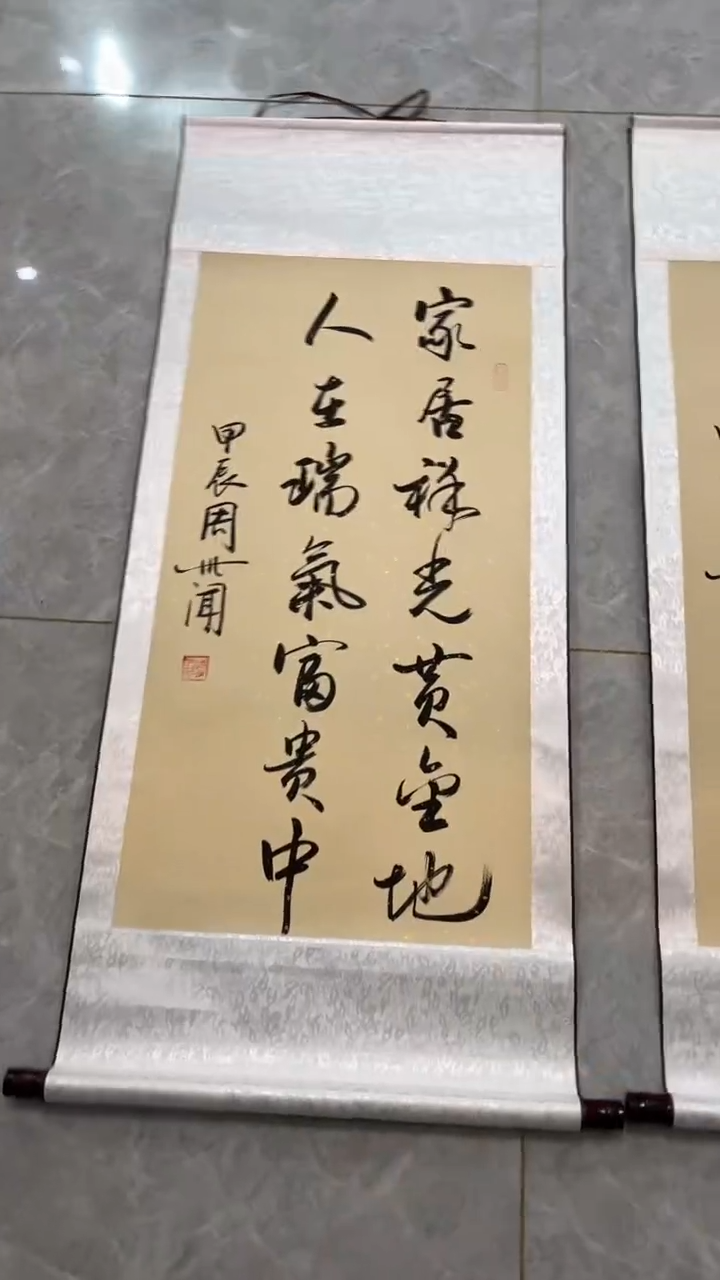 家居祥光黄金地
人在瑞氣富贵中
甲辰周世闻